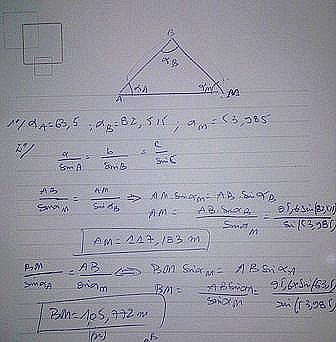 B
α_B
A α_A α_M M
1°/ α_A=63,5 ; α_B=82,515 ; α_M=53,985
2°/ a/sinA = b/sinB = c/sinC
AB/sinα_M = AM/sinα_B ⟹ AM sinα_M = AB sinα_B
AM = AB sinα_B/sinα_M =
AM=117,153 m
BM/sinα_A = AB/sinα_M ⟺ BM sinα_M = AB sinα_A
BM= AB sinα_A/sinα_M = 95,6 sin(63,5)/sin(53,985)
BM=105,772 m